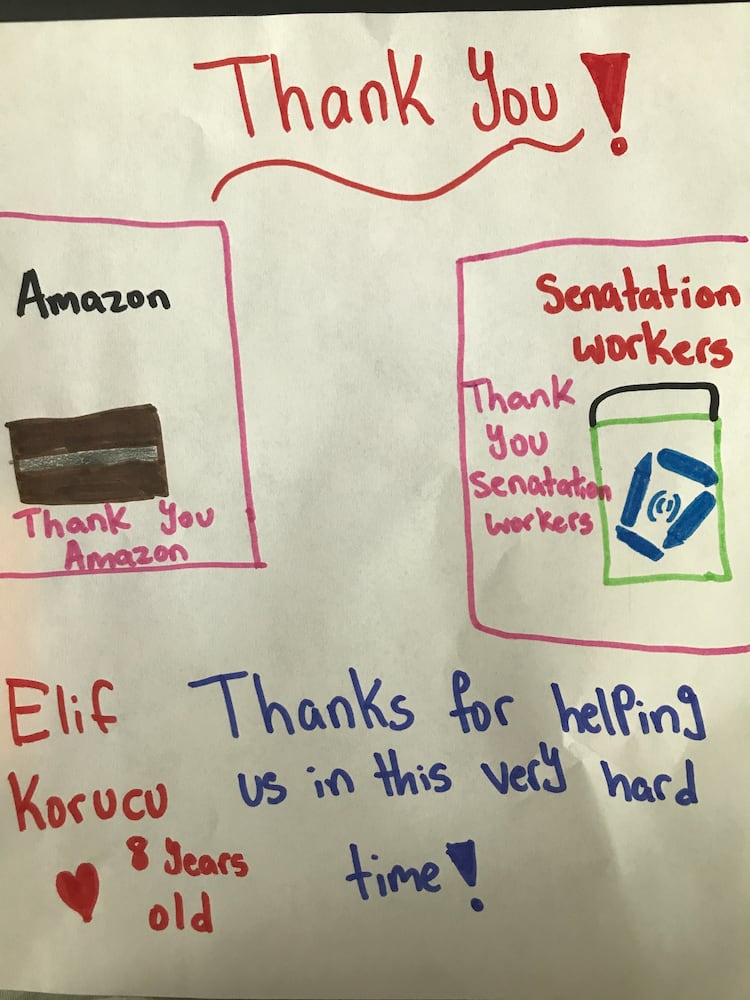 Thank You!
Amazon
Thank You
Amazon
Senatation
workers
Thank
You
Senatation
workers
Elif
Korucu
8 Years
old
Thanks for helping
us in this very hard
time!